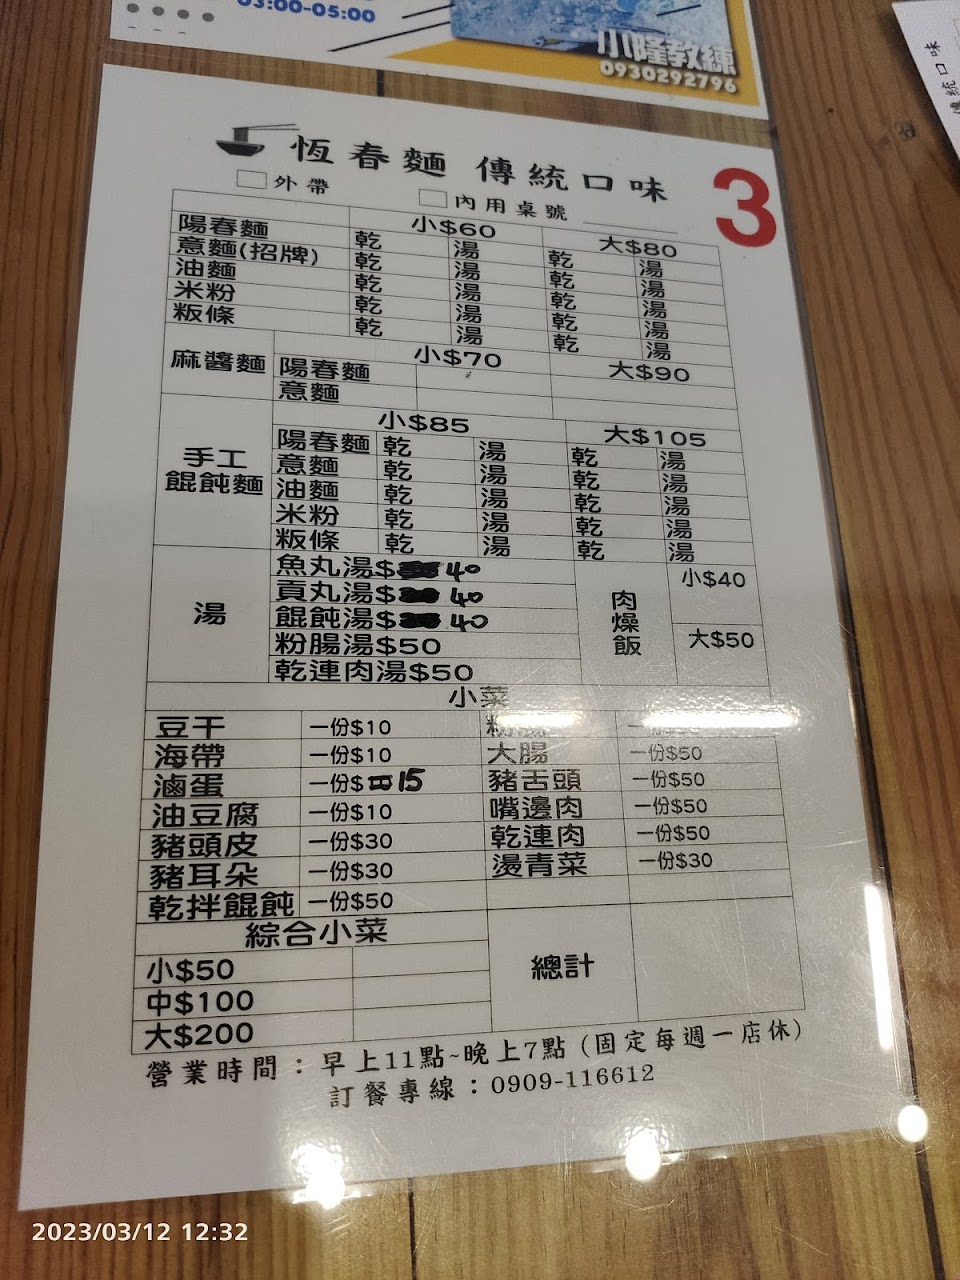 03:00-05:00
小隆教練
0930292796
傳統口味
恆春麵 傳統口味
3
外帶 內用桌號
小$60 大$80
陽春麵 乾 湯 乾 湯
意麵(招牌) 乾 湯 乾 湯
油麵 乾 湯 乾 湯
米粉 乾 湯 乾 湯
粄條 乾 湯 乾 湯
麻醬麵
小$70 大$90
陽春麵
意麵
手工
餛飩麵
小$85 大$105
陽春麵 乾 湯 乾 湯
意麵 乾 湯 乾 湯
油麵 乾 湯 乾 湯
米粉 乾 湯 乾 湯
粄條 乾 湯 乾 湯
湯
魚丸湯$ 40
貢丸湯$ 40
餛飩湯$ 40
粉腸湯$50
乾連肉湯$50
肉燥飯
小$40
大$50
小菜
豆干 一份$10 粉
海帶 一份$10 大腸 一份$50
滷蛋 一份$ 15 豬舌頭 一份$50
油豆腐 一份$10 嘴邊肉 一份$50
豬頭皮 一份$30 乾連肉 一份$50
豬耳朵 一份$30 燙青菜 一份$30
乾拌餛飩 一份$50
綜合小菜
小$50
中$100
大$200
總計
營業時間：早上11點~晚上7點 (固定每週一店休)
訂餐專線：0909-116612
2023/03/12 12:32